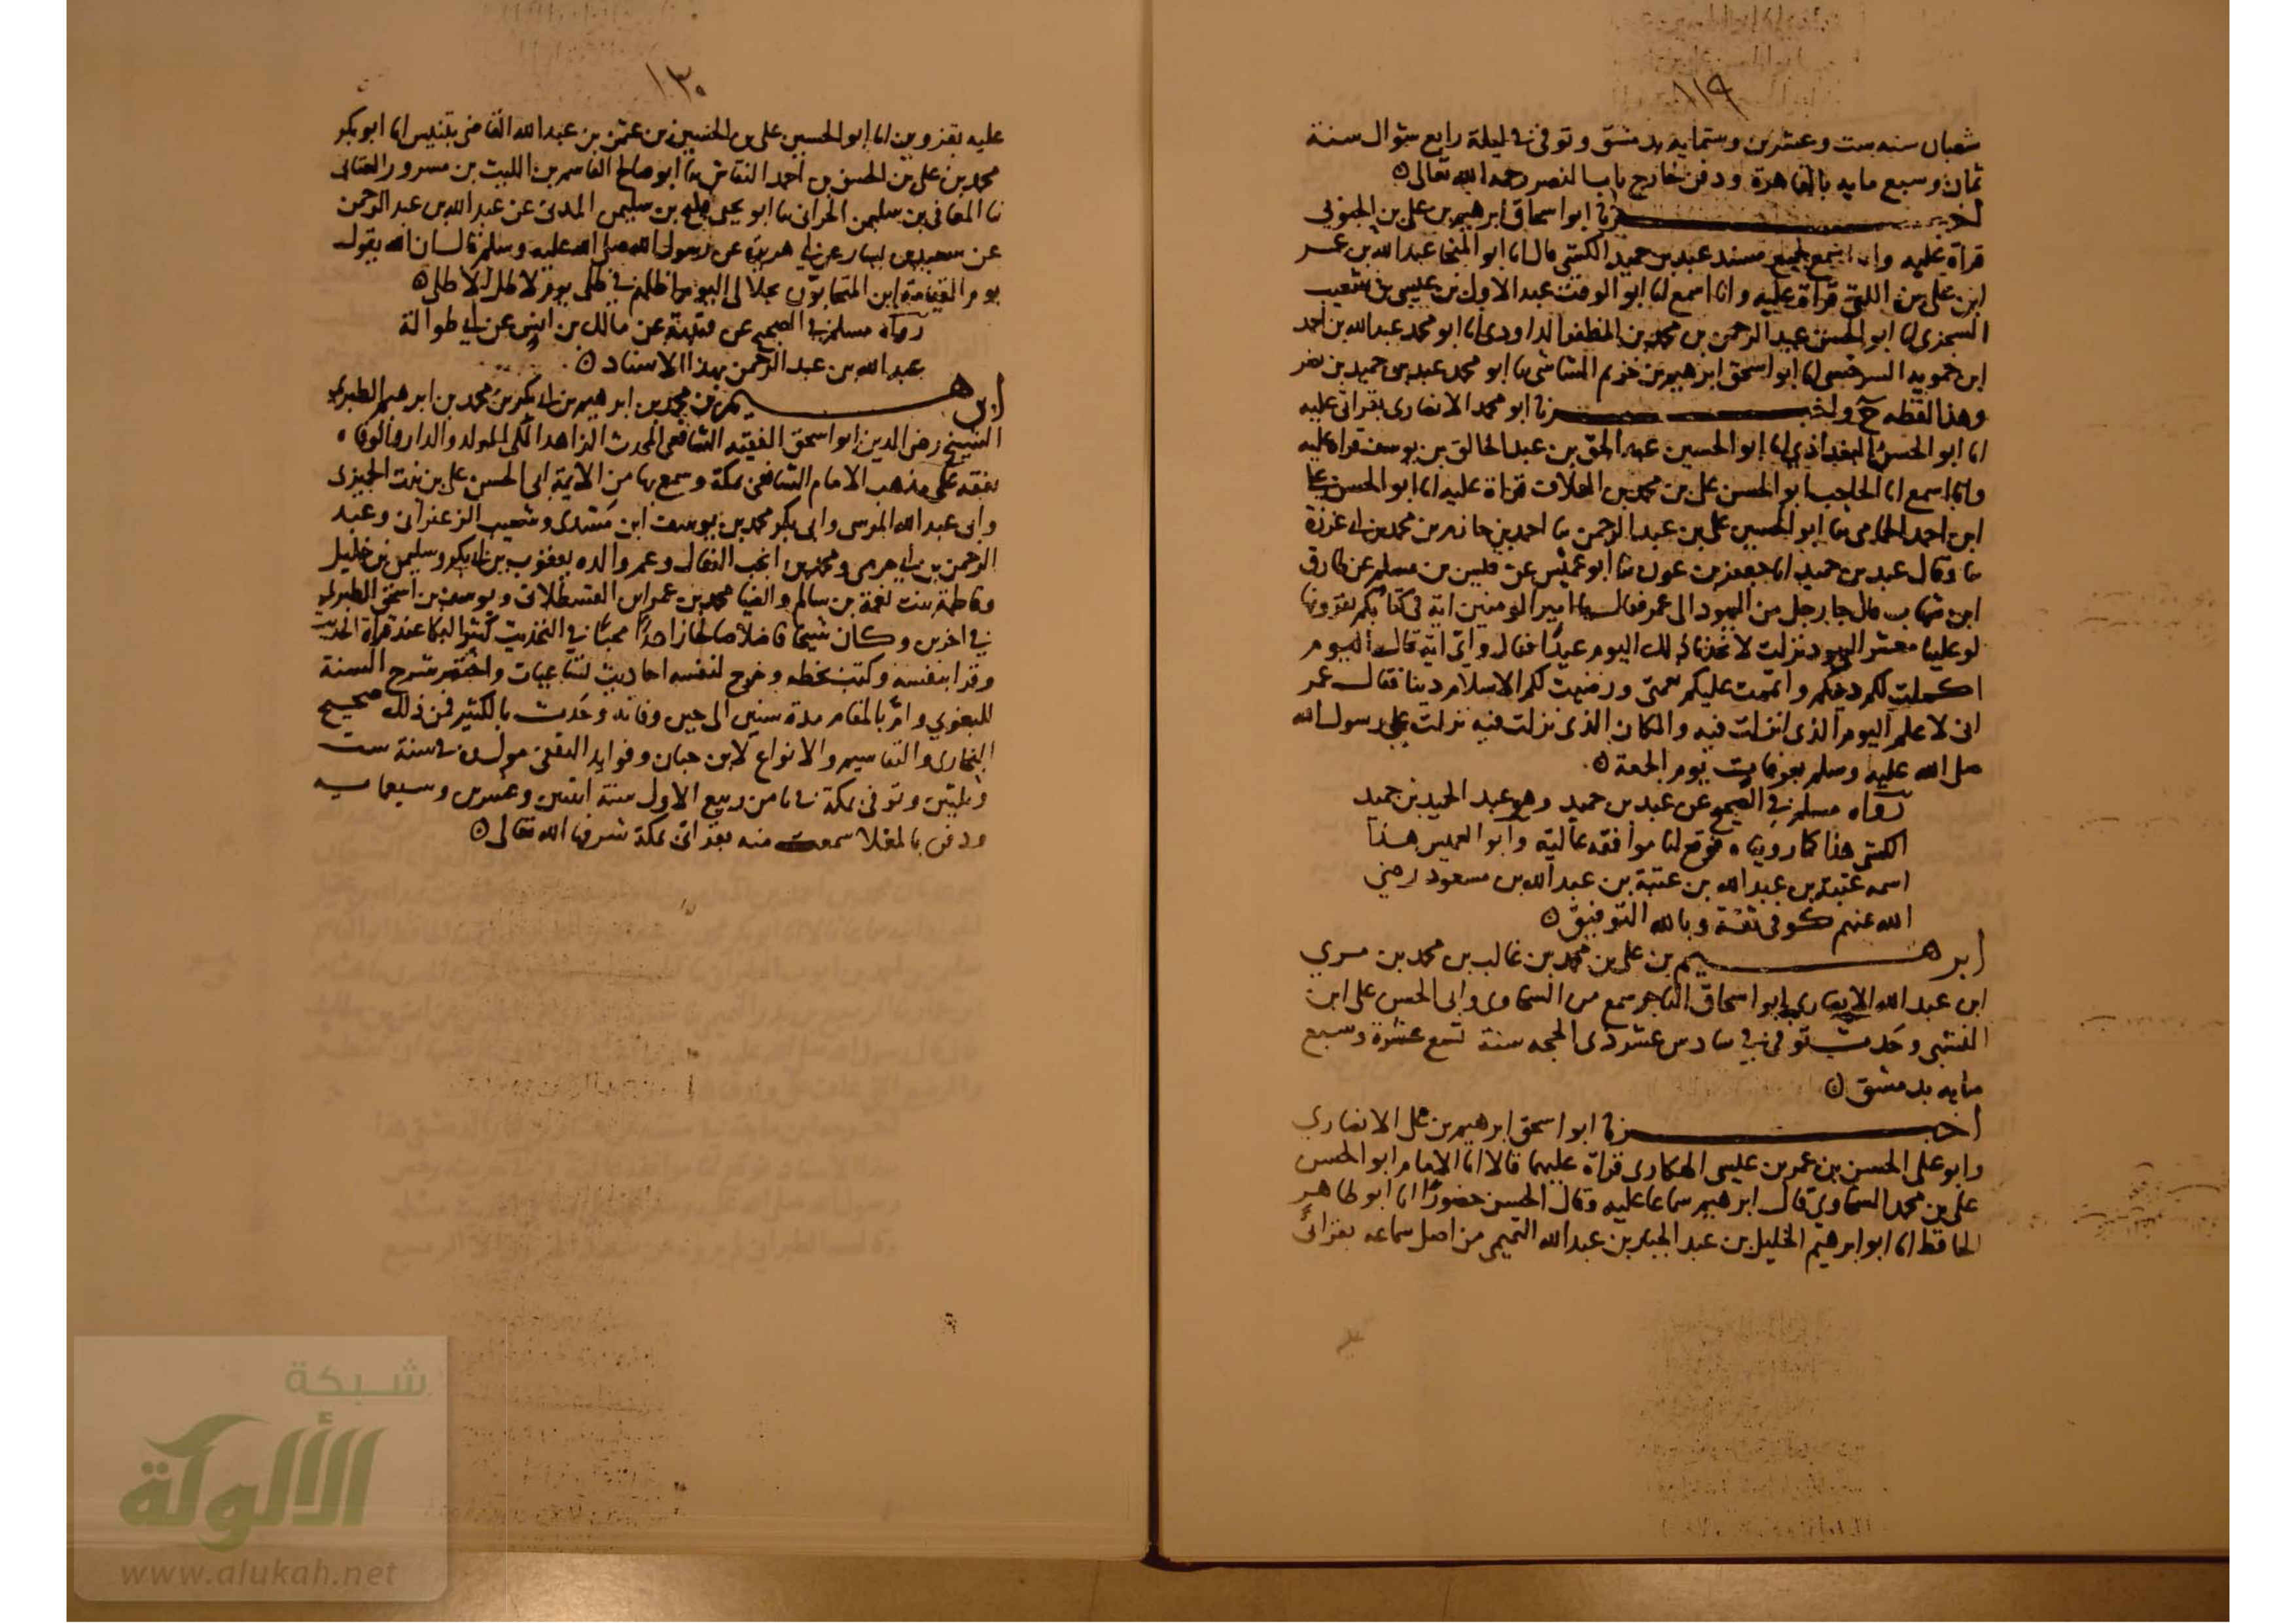 ١١٩
شعبان سنه ست وعشرين وستمايه بدمشق وتوفى في ليلة رابع شوال سنة
ثمان وسبع مايه بالقاهرة ودفن خارج باب النصر رحمه الله تعالى
اخبرنا ابو اسحاق ابرهيم بن على بن الحبوبى
قراة عليه وانا اسمع لجميع مسند عبد بن حميد الكشى قال انا ابو المنجا عبد الله بن عمر
ابن على بن اللتى قراة عليه وانا اسمع انا ابو الوقت عبد الاول بن عيسى بن شعيب
السجزى انا ابو الحسن عبد الرحمن بن محمد بن المظفر الداودى انا ابو محمد عبد الله بن احمد
ابن حمويه السرخسى انا ابو اسحق ابرهيم بن خزيم الشاشى نا ابو محمد عبد بن حميد بن نصر
وهذا لفظه ح واخبرنا ابو محمد الانصارى بقراتى عليه
انا ابو الحسن البغداذى انا ابو الحسين عبد الحق بن عبد الخالق بن يوسف قراة عليه
وانا اسمع انا الحاجب ابو الحسن على بن محمد بن العلاف قراة عليه انا ابو الحسن على
ابن احمد الحمامى نا ابو الحسين على بن عبد الرحمن نا احمد بن حازم بن محمد بن ابى غرزة
نا وقال عبد بن حميد انا جعفر بن عون نا ابو عميس عن قيس بن مسلم عن طارق
ابن شهاب قال جا رجل من اليهود الى عمر فقال يا امير المومنين اية فى كتابكم تقرونها
لو علينا معشر اليهود نزلت لاتخذنا ذلك اليوم عيدا فقال واى اية قال اليوم
اكملت لكم دينكم واتممت عليكم نعمتى ورضيت لكم الاسلام دينا فقال عمر
انى لاعلم اليوم الذى انزلت فيه والمكان الذى نزلت فيه نزلت على رسول الله
صلى الله عليه وسلم بعرفات يوم الجمعة
رواه مسلم في الصحيح عن عبد بن حميد وهو عبد الحميد بن حميد
الكشى هذا كما رويناه فوقع لنا موافقه عالية وابو العميس هذا
اسمه عتبة بن عبد الله بن عتبة بن عبد الله بن مسعود رضى
الله عنهم كوفى ثقة وبالله التوفيق
ابرهيم بن على بن محمد بن غالب بن محمد بن مري
ابن عبد الله الانصارى ابو اسحاق التاجر سمع من السخاوى وابى الحسن على ابن
وحدث توفى في سادس عشر ذى الحجه سنة تسع عشرة وسبع
مايه بدمشق
اخبرنا ابو اسحق ابرهيم بن على الانصارى
وابو على الحسن بن عمر بن عيسى الهكارى قراة عليهما قالا انا الامام ابو الحسن
على بن محمد السخاوى قال ابرهيم سماعا عليه وقال الحسن حضورا انا ابو طاهر
الحافظ انا ابو ابرهيم الخليل بن عبد الجبار بن عبد الله التميمى من اصل سماعه بقراتى
١٣٠
عليه بقزوين انا ابو الحسين على بن الحسين بن عثمن بن عبد الله القاضى بتنيس انا ابو بكر
محمد بن على بن الحسن بن احمد النقاش نا ابو صالح القاسم بن الليث بن مسرور العتابى
نا المعافى بن سليمن الحرانى نا ابو يحيى فليح بن سليمن المدنى عن عبد الله بن عبد الرحمن
عن سعيد بن يسار عن ابى هريرة عن رسول الله صلى الله عليه وسلم قال ان الله يقول
يوم القيامة اين المتحابون بجلالى اليوم اظلهم في ظلى يوم لا ظل الا ظلى
رواه مسلم في الصحيح عن قتيبة عن مالك بن انس عن ابى طوالة
عبد الله بن عبد الرحمن بهذا الاسناد
ابرهيم بن محمد بن ابرهيم بن ابى بكر بن محمد بن ابرهيم الطبرى
الشيخ رضى الدين ابو اسحق الفقيه الشافعى المحدث الزاهد المكى المولد والدار والوفاه
تفقه على مذهب الامام الشافعى بمكة وسمع بها من الايمة ابى الحسن على بن بنت الجميزى
وابى عبد الله المرسى وابى بكر محمد بن يوسف ابن مسدى وشعيب الزعفرانى وعبد
الرحمن بن ابى حرمى ومحمد بن وعم والده يعقوب بن ابى بكر وسليمن بن خليل
وفاطمة بنت نعمة بن سالم والضيا محمد بن عمر ابن القسطلانى ويوسف بن اسحق الطبرى
في اخرين وكان شيخا فاضلا صالحا زاهدا محبا في التحديث كثير البكا عند قراة الحديث
وقرا بنفسه وكتب بخطه وخرج لنفسه احاديث تساعيات واختصر شرح السنة
للبغوى وام بالمقام مدة سنين الى حين وفاته وحدث بالكثير فمن ذلك صحيح
البخارى والتقاسيم والانواع لابن حبان وفوايد الثقفى مولده في سنة ست
وثلثين وتوفى بمكة في ثامن ربيع الاول سنة اثنتين وعشرين وسبعمايه
ودفن بالمعلا سمعت منه بقراتى بمكة شرفها الله تعالى
شبكة
الألوكة
www.alukah.net